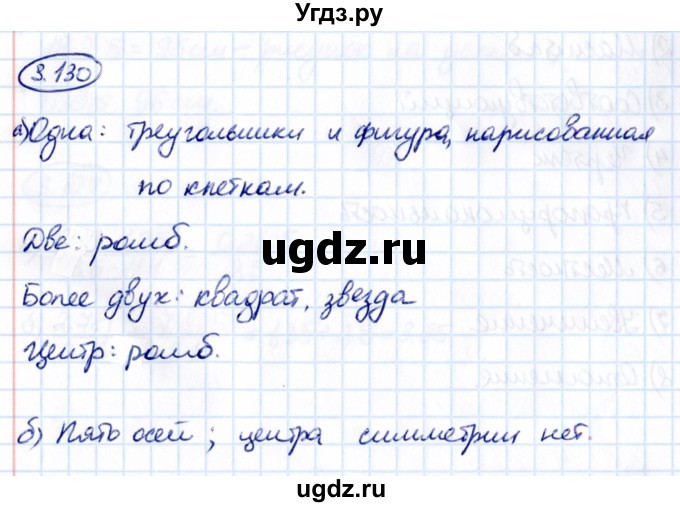 Угдз.ру
3.130
а) Одна: треугольники и фигура, нарисованная
по клеткам.
Две: ромб.
ugdz.ru
Более двух: квадрат, звезда
Центр: ромб.
ugdz.ru
б) Пять осей; центра симметрии нет.
ugdz.ru